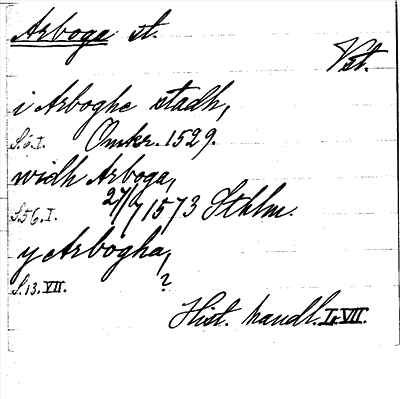 Arboga st.
Vst.
i Arboghe stadh,
S. 6. I. Omkr. 1529.
widh Arboga,
S. 56. I. 27/7 1573 Sthlm.
y Arbogha,
S. 13. VII. ?
Hist. handl. I, VII.